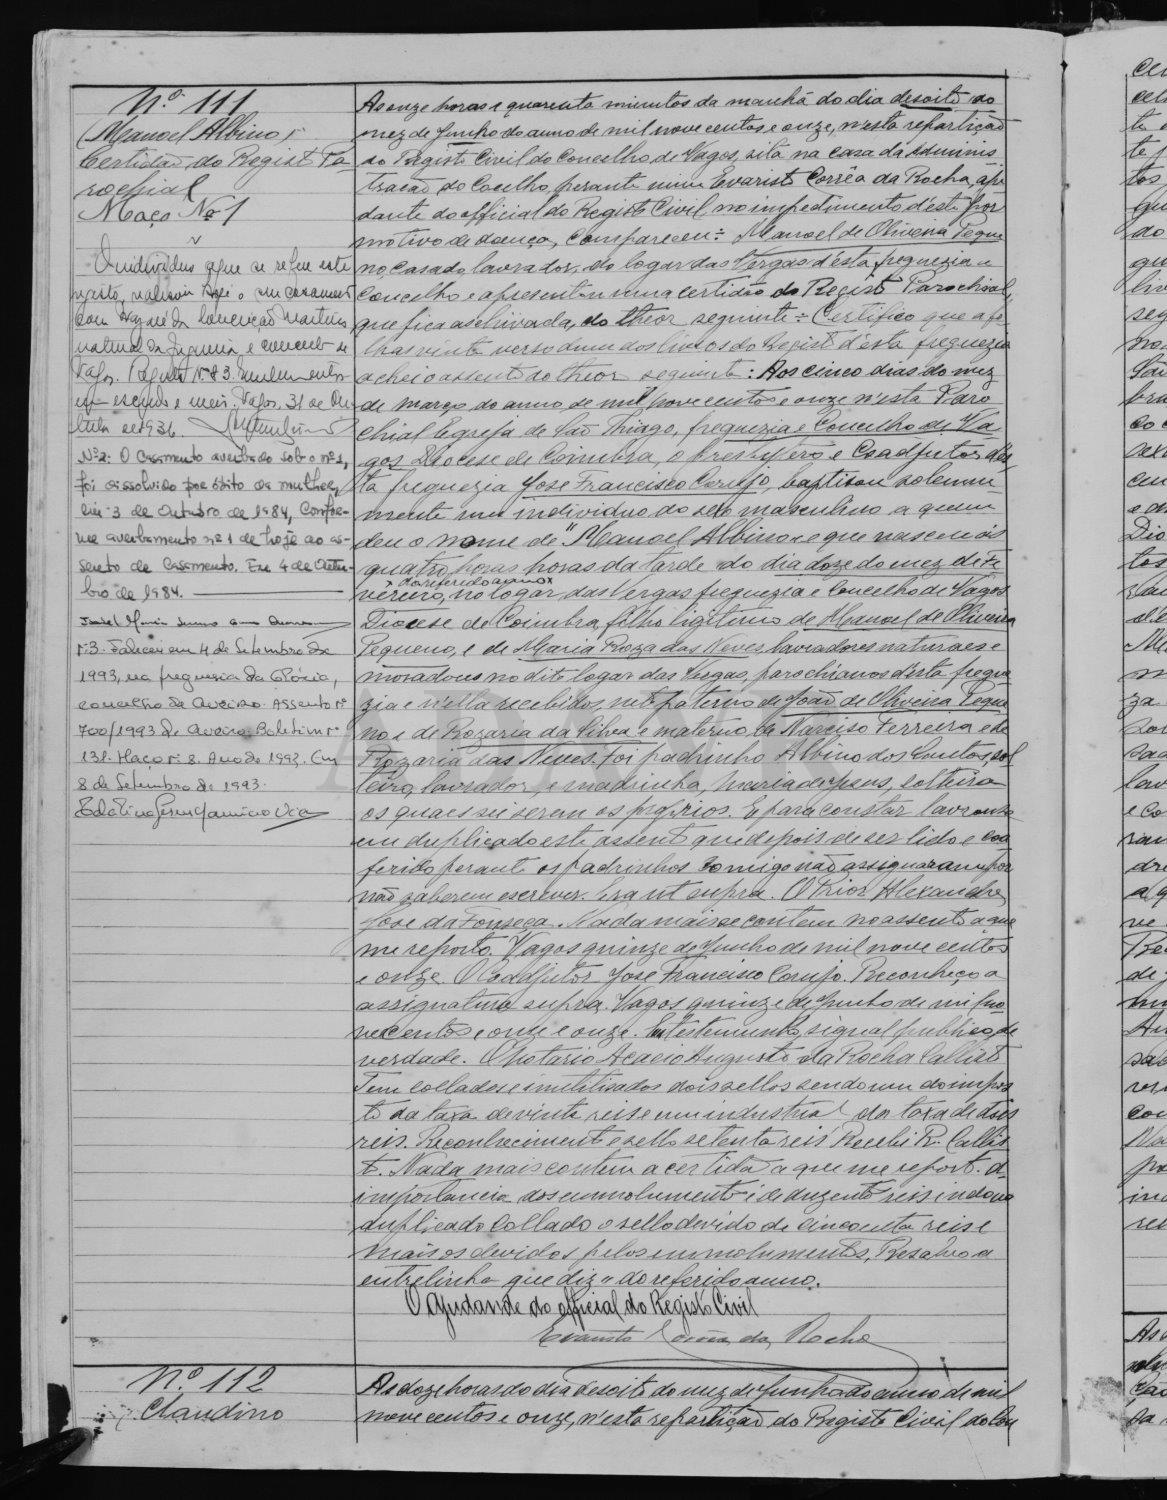 Nº 111
Manoel Albino
Certidão do Registo Pa-
rochial
Maço Nº 1
O individuo a que se refere este
registo, realizou hoje o seu casamento
com da Conceição Martins,
natural da freguesia e concelho de
Vagos. Nº 83.
escudo e meio. Vagos, 31 de Ou-
tubro de 1936.
Nº 2: O Casamento averbado sob o nº 1,
foi dissolvido por óbito da mulher,
em 3 de Outubro de 1984, confor-
me averbamento nº 1 de hoje ao as-
sento de Casamento. Em 4 de Outu-
bro de 1984.
nº 3. Faleceu em 4 de Setembro de
1993, na freguesia da Glória,
concelho de Aveiro. Assento nº
700/1993 de Aveiro. Boletim nº
131. Maço nº 8. Ano de 1993. Em
8 de Setembro de 1993.
As onze horas e quarenta minutos da manhã do dia desoito do
mez de Junho do anno de mil nove centos e onze, n'esta repartição
do Registo Civil do Concelho de Vagos, sita na casa da Adminis
tração do Cocelho, perante mim Evaristo Corrêa da Rocha, aju
dante do official do Registo Civil, no impedimento d'este por
motivo de doença, compareceu: Manoel de Oliveira Peque
no, casado, lavrador, do logar das Vergas d'esta freguezia e
Concelho e apresentou uma certidão do Registo Parochial,
que fica archivada, do theor seguinte: Certifico que a fo-
lhas vinte verso d'um dos livros do Registo d'esta freguezia
achei o assento do theor seguinte: Aos cinco dias do mez
de março do anno de mil nove centos e onze n'esta Paro
chial Egreja de São Thiago, freguezia e Concelho de Va-
gos Diocese de Coimbra, o presbytero e Coadjutor d'es-
ta freguezia José Francisco Corujo, baptisou solemne-
mente um individuo do sexo masculino a quem
deu o nome de "Manoel Albino" e que nasceu ás
quatro horas horas da tarde do dia doze do mez de Fe
× do referido anno ×
vereiro, no logar das Vergas freguezia e Concelho de Vagos
Diocese de Coimbra, filho ligitimo de Manoel de Oliveira
Pequeno, e de Maria Roza das Neves, lavradores naturaes e
moradores no dito logar das Vergas, parochianos d'esta fregue
zia e n'ella recebidos neto paterno de João de Oliveira Peque
no e de Rozaria da Silva e materno de Narciso Ferreira e de
Rozaria das Neves. Foi padrinho Albino dos Santos, sol
teiro, lavrador, e madrinha, Maria de Jesus, solteira
os quaes sei serem os proprios. E para constar lavrou-se
em duplicado este assento que depois de ser lido e con
ferido perante os padrinhos comigo não assignaram por
não saberem escrever. Era ut supra. O Prior Alexandre
José da Fonseca. Nada mais se contem no assento a que
me reporto. Vagos quinze de Junho de mil nove centos
e onze. O Coadjutor José Francisco Corujo. Reconheço a
assignatura supra. Vagos quinze de Junho de mil no
vecentos e onze e onze. Em testemunho, signal publico, de
verdade. O Notario Acacio Augusto da Rocha Callisto
Tem collados e inutilisados dois sellos sendo um do impos
to da taxa de vinte reis e um industrial da taxa de dois
reis. Reconhecimento e sello setenta reis Recebi R. Callis
to. Nada mais contem a certidão a que me reporto. A
importancia dos emmolumentos é de duzentos reis indo no
duplicado collado o sello devido de cincoenta reis e
mais os devidos pelos emmolumentos, Resalvo a
entrelinha que diz "do referido anno.
O Ajudande do official do Registo Civil
Evaristo Corrêa da Rocha
Nº 112
Claudino
As doze horas do dia desoito do mez de Junho do anno de mil
nove centos e onze, n'esta repartição do Registo Civil do Con
ADAV